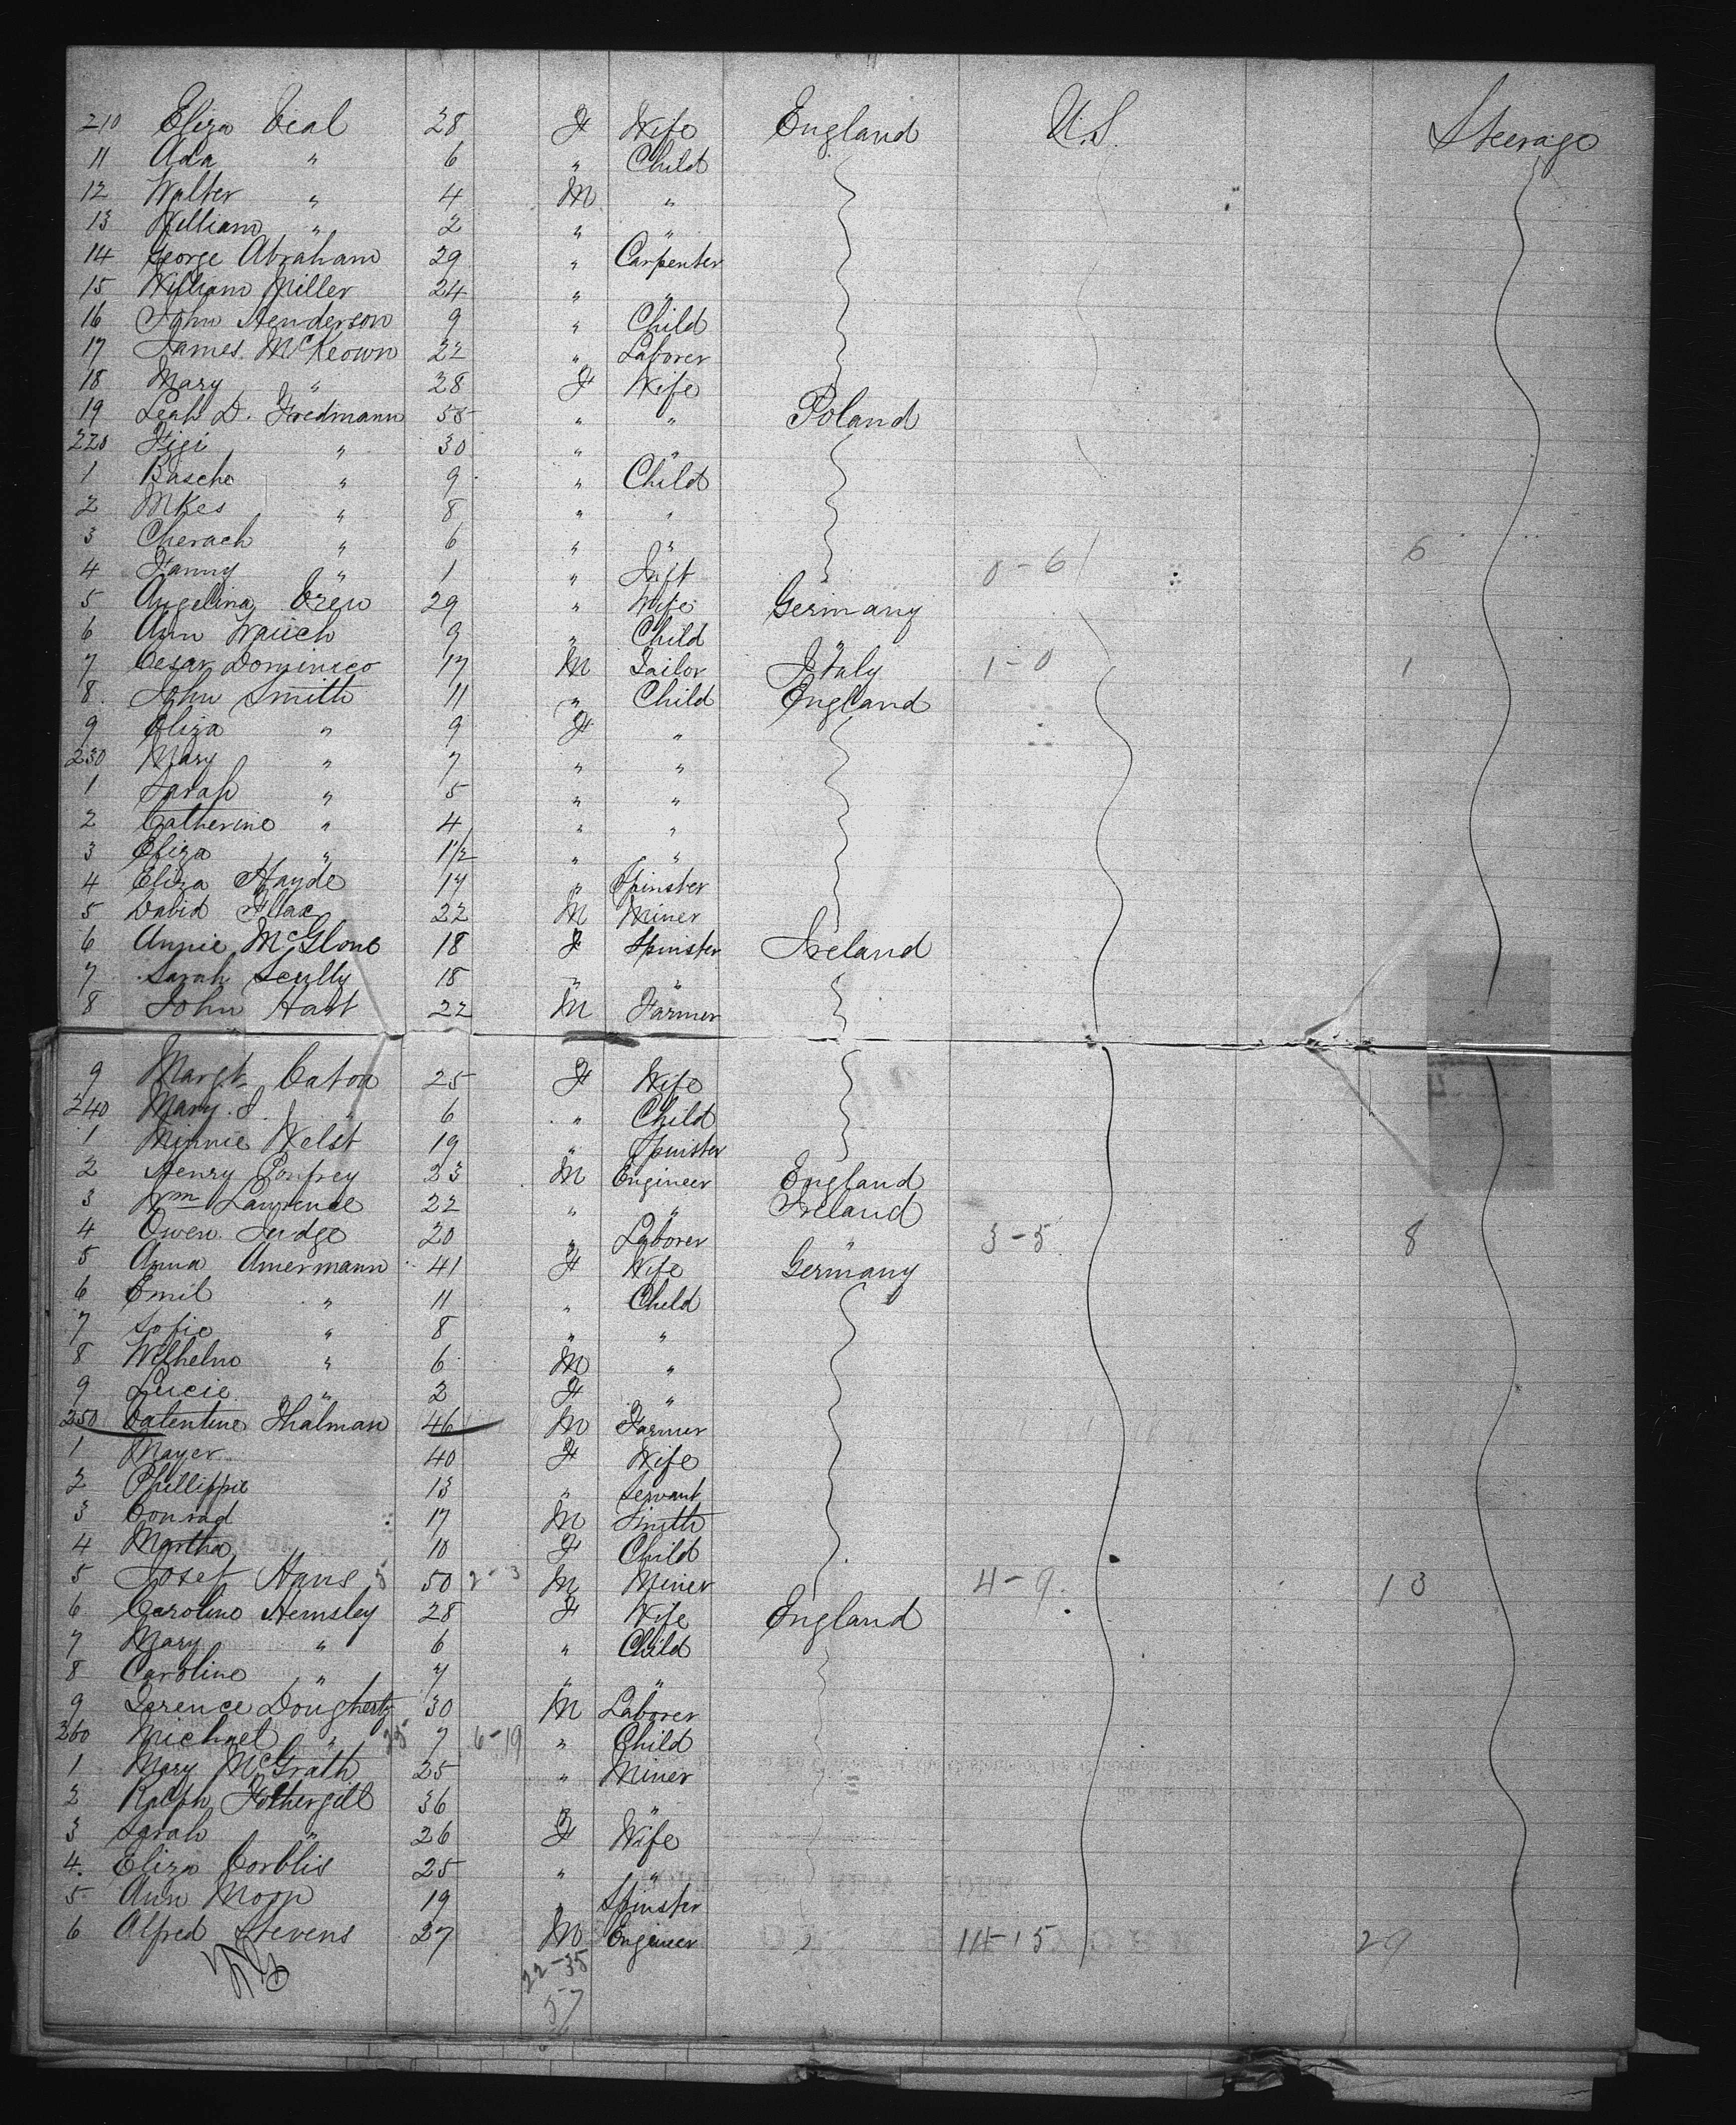 210 Eliza Veal 28 F Wife England U.S. Steerage
11 Ada " 6 " Child
12 Walter " 4 M "
13 William " 2 " "
14 George Abraham 29 " Carpenter
15 William Miller 24 " "
16 John Henderson 9 " Child
17 James McKeown 22 " Laborer
18 Mary " 28 F Wife
19 Leah D. Fredmann 55 " " Poland
220 Figi " 30 " "
1 Basche " 9 " Child
2 Mkes " 8 " "
3 Cherach " 6 " "
4 Fanny " 1 " Inft 0-6 6
5 Angelina 29 " Wife Germany
6 Ann Wauch 9 " Child "
7 Cesar Dominico 17 M Tailor Italy 1-0 1
8 John Smith 11 " Child England
9 Eliza " 9 F "
230 Mary " 7 " "
1 Sarah " 5 " "
2 Catherine " 4 " "
3 Eliza " 1 1/2 " "
4 Eliza Hayde 17 " Spinster
5 David Flax 22 M Miner
6 Annie McGlone 18 F Spinster Ireland
7 Sarah Scully 18 " "
8 John Hart 22 M Farmer
9 Margt Caton 25 F Wife
240 Mary J. " 6 " Child
1 Minnie Welst 19 " Spinster
2 Henry Ponfrey 23 M Engineer England
3 Wm Lawrence 22 " " Ireland
4 Owen Judge 20 " Laborer " 3-5 8
5 Anna Amermann 41 F Wife Germany
6 Emil " 11 " Child
7 Sofie " 8 " "
8 Wilhelm " 6 M "
9 Lucie " 2 F "
250 Valentine Thalman 46 M Farmer
1 Mayer 40 F Wife
2 Phillippie 13 " Servant
3 Conrad 17 M Smith
4 Martha 10 F Child
5 Josef Hans 5 50 2-3 M Miner 4-9 13
6 Caroline Hemsley 28 F Wife England
7 Mary " 6 " Child
8 Caroline " 7 " "
9 Terence Dougherty 30 M Laborer
260 Michael " 25 7 6-19 " Child
1 Mary McGrath 25 " Miner
2 Ralph Fothergill 36 " "
3 Sarah " 26 F Wife
4 Eliza Corblis 25 " "
5 Ann Moon 19 " Spinster
6 Alfred Stevens 27 M Engineer 14-15 29
22-35
57